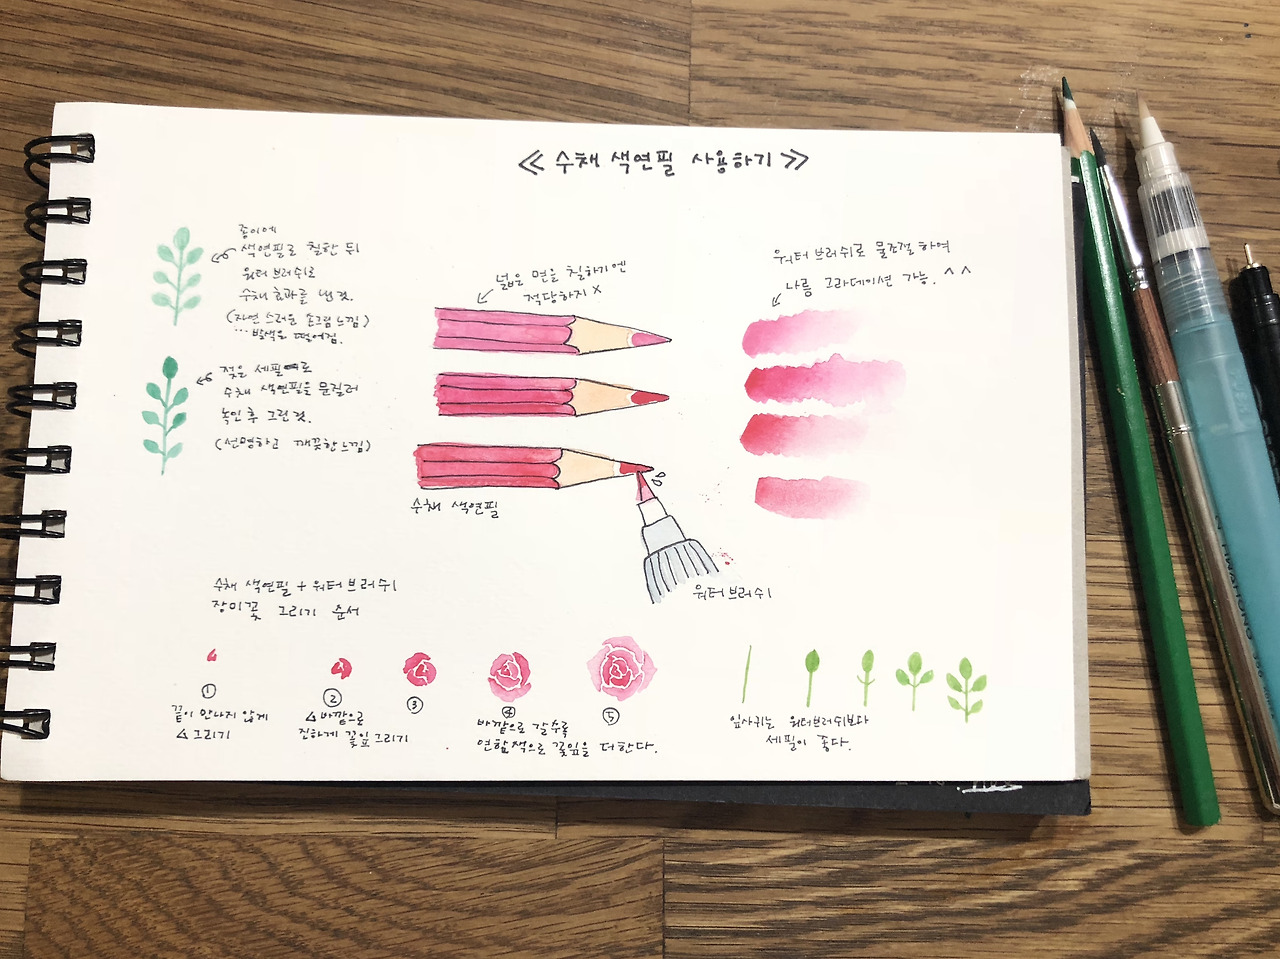 ≪ 수채 색연필 사용하기 ≫
종이에
색연필로 칠한 뒤
워터 브러쉬로
수채 효과를 낸 것.
(자연스러운 손그림 느낌)
… 발색은 떨어짐.
젖은 세필로
수채 색연필을 문질러
녹인 후 그린 것.
(선명하고 깨끗한 느낌)
넓은 면을 칠하기엔
적당하지 X
수채 색연필
워터 브러쉬
워터 브러쉬로 물조절 하여
나름 그라데이션 가능. ^^
수채 색연필 + 워터 브러쉬
장미꽃 그리기 순서
①
끝이 만나지 않게
△ 그리기
②
△ 바깥으로
진하게 꽃잎 그리기
③
④
⑤
바깥으로 갈수록
연한색으로 꽃잎을 더한다.
잎사귀는 워터브러쉬보다
세필이 좋다.
HWAHONG